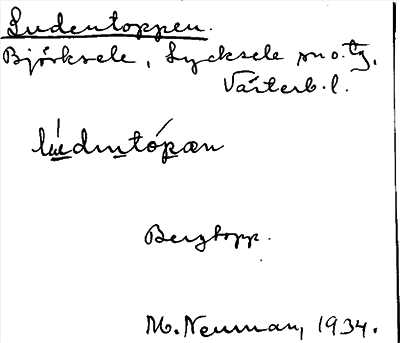 Ludentoppen.
Björksele, Lycksele sn o. tg,
Västerb. l.
lúdentópæn
Bergtopp.
M. Neuman, 1934.